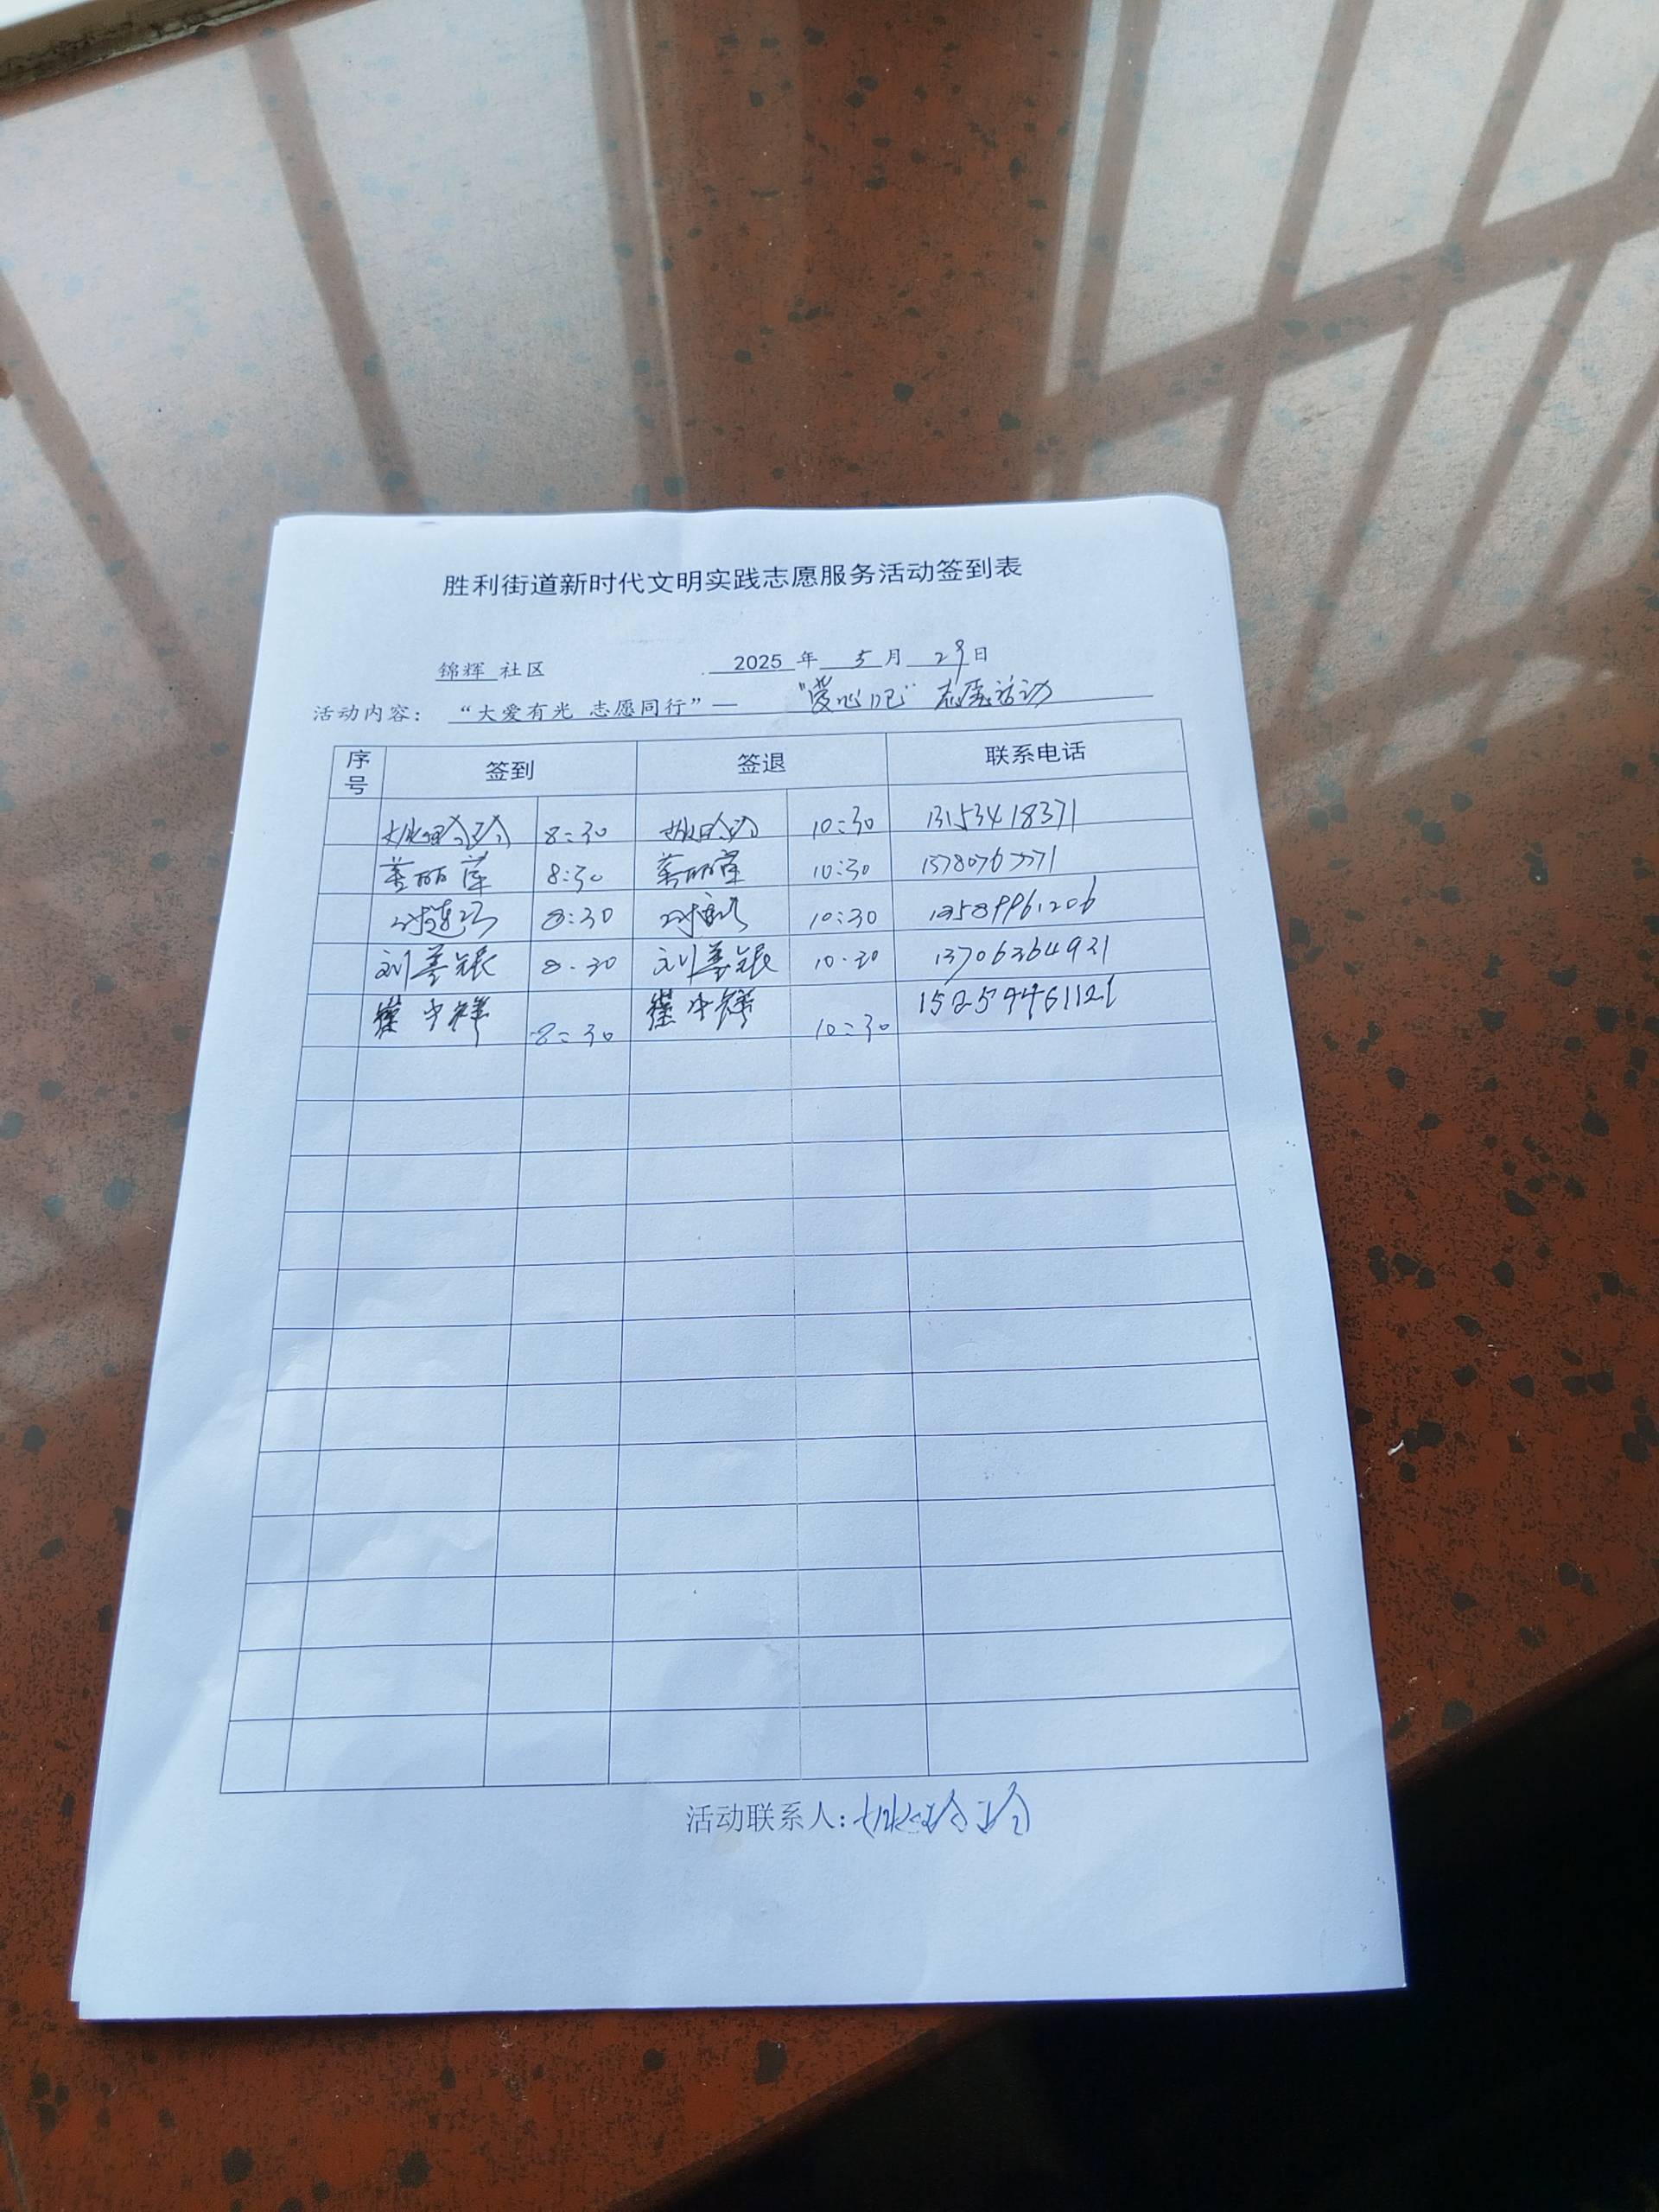 胜利街道新时代文明实践志愿服务活动签到表
锦辉 社区 2025 年 5 月 29 日
活动内容： “大爱有光 志愿同行”— “爱心吧” 志愿活动
序号 签到 签退 联系电话
8:30 10:30 13153418371
姜丽萍 8:30 姜丽萍 10:30
8:30 10:30
刘善银 8:30 刘善银 10:30 13706364931
8:30 10:30 15259461121
活动联系人: